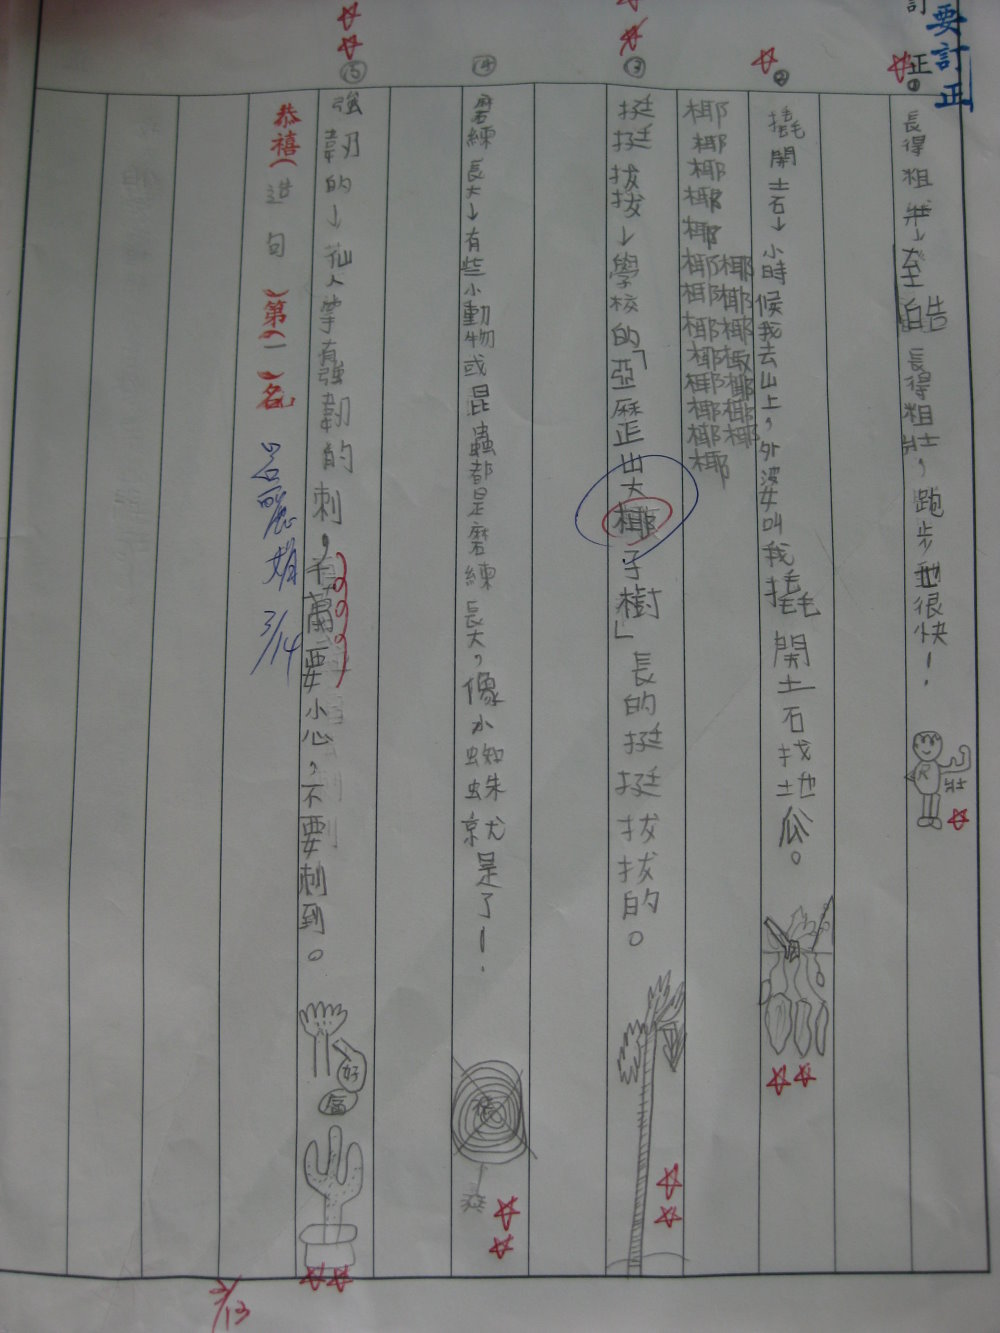 要訂正
訂正
① 長得粗壯↓至皓長得粗壯，跑步也很快！
壯
② 撬開土石↓小時候我去山上，外婆叫我撬開土石找地瓜。
椰椰椰椰椰椰椰椰椰椰椰椰椰
椰椰椰椰椰椰椰
③ 挺挺拔拔↓學校的「亞歷山大椰子樹」長的挺挺拔拔的。
④ 磨練長大↓有些小動物或昆蟲都是磨練長大，像小蜘蛛就是了！
⑤ 強韌的↓仙人掌有強韌的刺，千萬要小心，不要刺到。
好
恭禧（造句）（第一）名
3/14
3/13